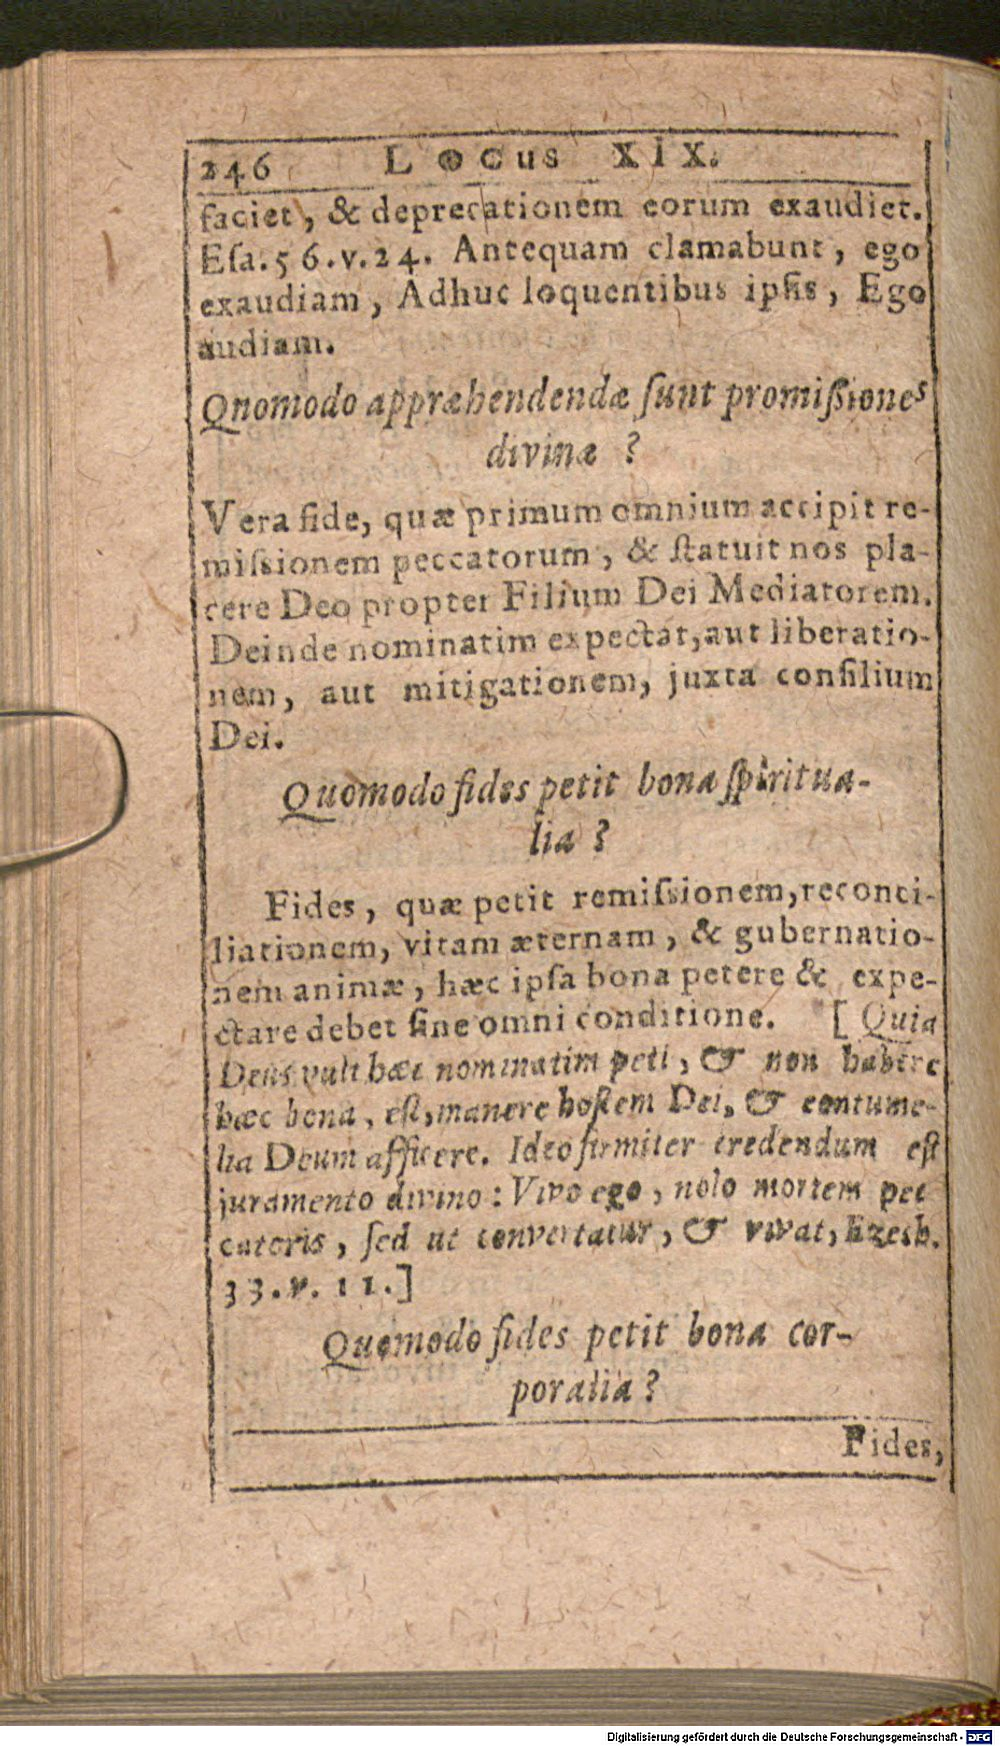 246 Locus XIX.
faciet, & deprecationem eorum exaudiet.
Esa. 56. v. 24. Antequam clamabunt, ego
exaudiam, Adhuc loquentibus ipsis, Ego
audiam.
Qnomodo appræhendendæ ſunt promiſsiones
divinæ ?
Vera fide, quæ primum omnium accipit re-
miſsionem peccatorum, & ſtatuit nos pla-
cere Deo propter Filium Dei Mediatorem.
Deinde nominatim expectat, aut liberatio-
nem, aut mitigationem, juxta conſilium
Dei.
Quomodo fides petit bona ſpiritua-
lia ?
Fides, quæ petit remiſsionem, reconci-
liationem, vitam æternam, & gubernatio-
nem animæ, hæc ipſa bona petere & expe-
ctare debet ſine omni conditione. [ Quia
Deus vult hæc nominatim peti, & non habere
hæc bona, eſt, manere hoſtem Dei, & contume-
lia Deum afficere. Ideo firmiter credendum eſt
juramento divino : Vivo ego, nolo mortem pec
catoris, ſed ut convertatur, & vivat, Ezech.
33. v. 11.]
Quomodo fides petit bona cor-
poralia ?
Fides,
Digitalisierung gefördert durch die Deutsche Forschungsgemeinschaft - DFG